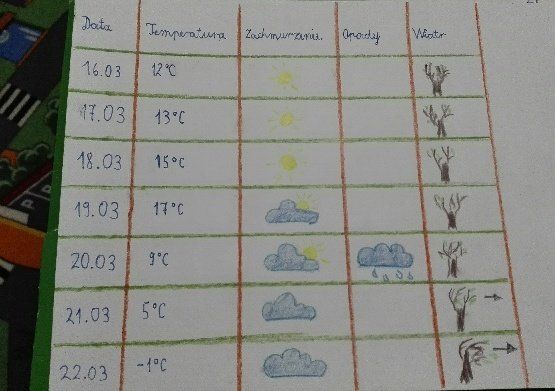 Data Temperatura Zachmurzenie Opady Wiatr
16.03 12°C
17.03 13°C
18.03 15°C
19.03 17°C
20.03 9°C
21.03 5°C
22.03 -1°C